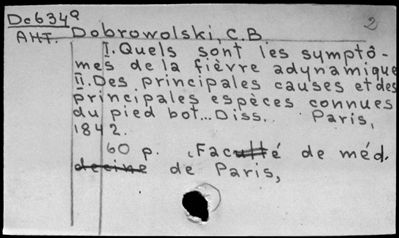 De634a 2
АНТ. Dobrowolski, C.B
I. Quels sont les symptô-
mes de la fièvre adynamique
II. Des principales causes et des
principales espèces connues
du pied bot... Diss. Paris,
1842.
60 p. (Faculté de méd.
decine de Paris,